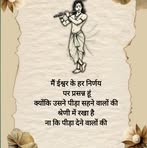 मैं ईश्वर के हर निर्णय
पर प्रसन्न हूं
क्योंकि उसने पीड़ा सहने वालों की
श्रेणी में रखा है
ना कि पीड़ा देने वालों की